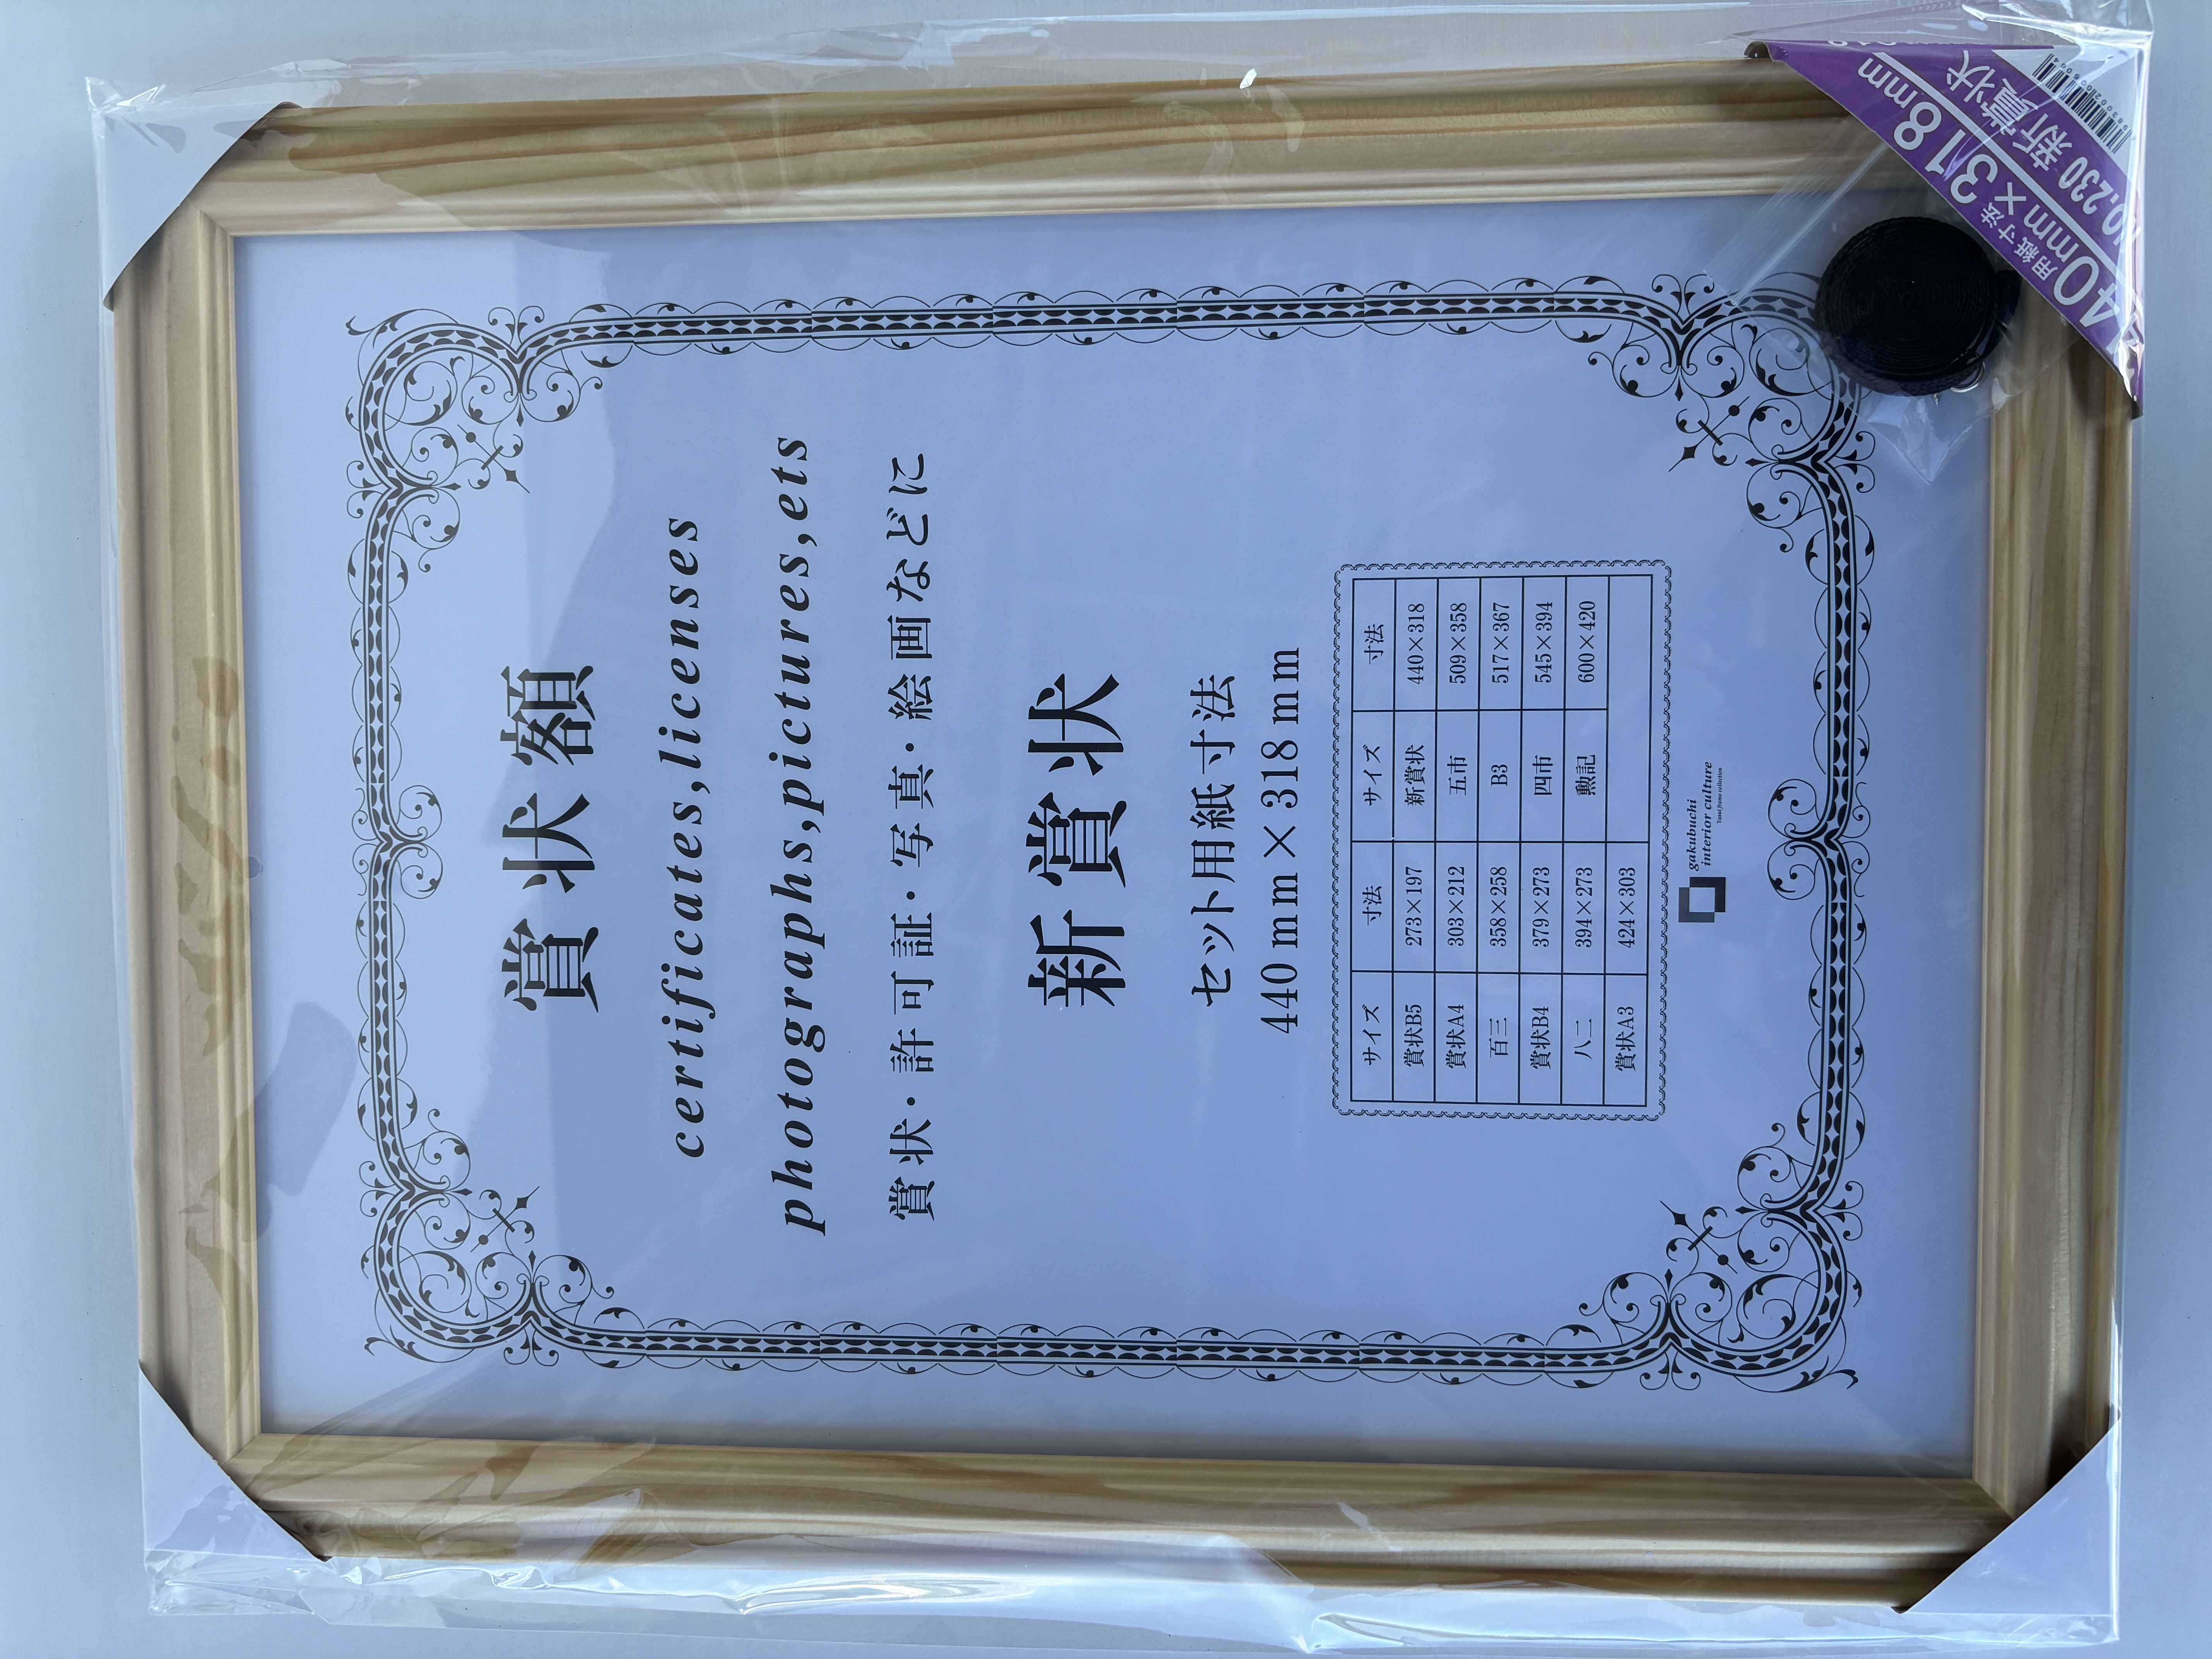 賞状額
certificates,licenses
photographs,pictures,ets
賞状・許可証・写真・絵画などに
新賞状
セット用紙寸法
440mm×318mm
サイズ 寸法 サイズ 寸法
賞状B5 273×197 新賞状 440×318
賞状A4 303×212 五市 509×358
百三 358×258 B3 517×367
賞状B4 379×273 四市 545×394
八二 394×273 勲記 600×420
賞状A3 424×303
gakubuchi
interior culture
用紙寸法
440mm×318mm
NO.230 新賞状